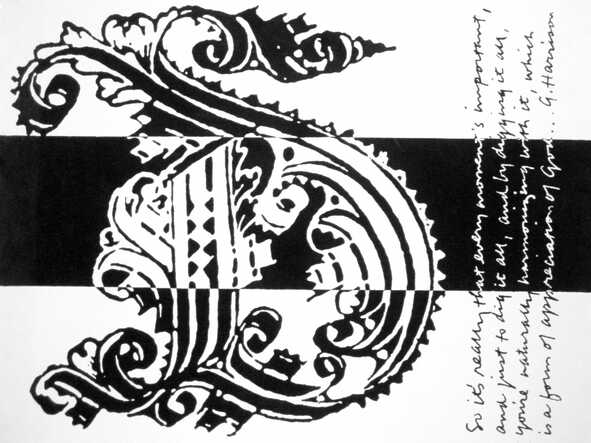 So it's really that every moment is important,
and just to dig it all, and by digging it all,
you're naturally harmonizing with it, which
is a form of appreciation of God... G. Harrison